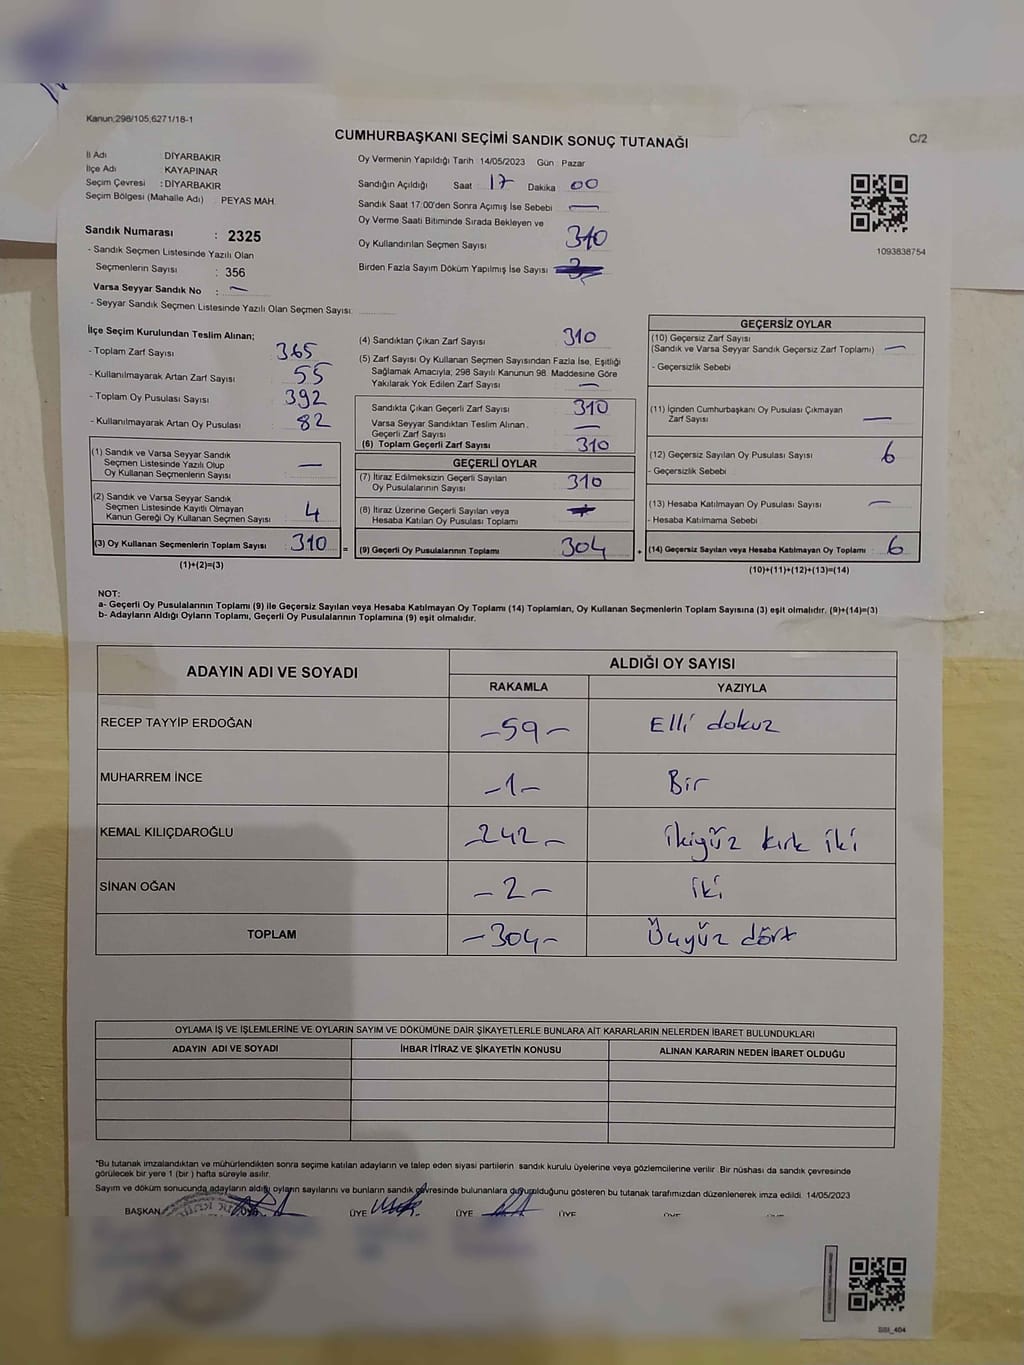 Kanun;298/105,6271/18-1
CUMHURBAŞKANI SEÇİMİ SANDIK SONUÇ TUTANAĞI
C/2
İl Adı DİYARBAKIR
İlçe Adı : KAYAPINAR
Seçim Çevresi : DİYARBAKIR
Seçim Bölgesi (Mahalle Adı) : PEYAS MAH.
Sandık Numarası : 2325
- Sandık Seçmen Listesinde Yazılı Olan
Seçmenlerin Sayısı : 356
Varsa Seyyar Sandık No : —
- Seyyar Sandık Seçmen Listesinde Yazılı Olan Seçmen Sayısı:
Oy Vermenin Yapıldığı Tarih : 14/05/2023 Gün : Pazar
Sandığın Açıldığı Saat 17 Dakika 00
Sandık Saat 17:00'den Sonra Açımış İse Sebebi —
Oy Verme Saati Bitiminde Sırada Bekleyen ve
Oy Kullandırılan Seçmen Sayısı 310
Birden Fazla Sayım Döküm Yapılmış İse Sayısı
1093838754
İlçe Seçim Kurulundan Teslim Alınan;
- Toplam Zarf Sayısı 365
- Kullanılmayarak Artan Zarf Sayısı 55
- Toplam Oy Pusulası Sayısı 392
- Kullanılmayarak Artan Oy Pusulası 82
(1) Sandık ve Varsa Seyyar Sandık
Seçmen Listesinde Yazılı Olup
Oy Kullanan Seçmenlerin Sayısı —
(2) Sandık ve Varsa Seyyar Sandık
Seçmen Listesinde Kayıtlı Olmayan
Kanun Gereği Oy Kullanan Seçmen Sayısı 4
(3) Oy Kullanan Seçmenlerin Toplam Sayısı 310
(1)+(2)=(3)
(4) Sandıktan Çıkan Zarf Sayısı 310
(5) Zarf Sayısı Oy Kullanan Seçmen Sayısından Fazla İse, Eşitliği
Sağlamak Amacıyla; 298 Sayılı Kanunun 98. Maddesine Göre
Yakılarak Yok Edilen Zarf Sayısı —
Sandıkta Çıkan Geçerli Zarf Sayısı 310
Varsa Seyyar Sandıktan Teslim Alınan
Geçerli Zarf Sayısı —
(6) Toplam Geçerli Zarf Sayısı 310
GEÇERLİ OYLAR
(7) İtiraz Edilmeksizin Geçerli Sayılan
Oy Pusulalarının Sayısı 310
(8) İtiraz Üzerine Geçerli Sayılan veya
Hesaba Katılan Oy Pusulası Toplamı
= (9) Geçerli Oy Pusulalarının Toplamı 304
GEÇERSİZ OYLAR
(10) Geçersiz Zarf Sayısı
(Sandık ve Varsa Seyyar Sandık Geçersiz Zarf Toplamı) —
- Geçersizlik Sebebi
(11) İçinden Cumhurbaşkanı Oy Pusulası Çıkmayan
Zarf Sayısı —
(12) Geçersiz Sayılan Oy Pusulası Sayısı 6
- Geçersizlik Sebebi
(13) Hesaba Katılmayan Oy Pusulası Sayısı —
- Hesaba Katılmama Sebebi
+ (14) Geçersiz Sayılan veya Hesaba Katılmayan Oy Toplamı 6
(10)+(11)+(12)+(13)=(14)
NOT:
a- Geçerli Oy Pusulalarının Toplamı (9) ile Geçersiz Sayılan veya Hesaba Katılmayan Oy Toplamı (14) Toplamları, Oy Kullanan Seçmenlerin Toplam Sayısına (3) eşit olmalıdır. (9)+(14)=(3)
b- Adayların Aldığı Oyların Toplamı, Geçerli Oy Pusulalarının Toplamına (9) eşit olmalıdır.
ADAYIN ADI VE SOYADI ALDIĞI OY SAYISI
RAKAMLA YAZIYLA
RECEP TAYYİP ERDOĞAN -59- Elli dokuz
MUHARREM İNCE -1- Bir
KEMAL KILIÇDAROĞLU -242- ikiyüz kırk iki
SİNAN OĞAN -2- iki
TOPLAM -304- Üçyüz dört
OYLAMA İŞ VE İŞLEMLERİNE VE OYLARIN SAYIM VE DÖKÜMÜNE DAİR ŞİKAYETLERLE BUNLARA AİT KARARLARIN NELERDEN İBARET BULUNDUKLARI
ADAYIN ADI VE SOYADI İHBAR İTİRAZ VE ŞİKAYETİN KONUSU ALINAN KARARIN NEDEN İBARET OLDUĞU
*Bu tutanak imzalandıktan ve mühürlendikten sonra seçime katılan adayların ve talep eden siyasi partilerin sandık kurulu üyelerine veya gözlemcilerine verilir. Bir nüshası da sandık çevresinde
görülecek bir yere 1 (bir ) hafta süreyle asılır.
Sayım ve döküm sonucunda adayların aldığı oyların sayılarını ve bunların sandık çevresinde bulunanlara duyurulduğunu gösteren bu tutanak tarafımızdan düzenlenerek imza edildi. 14/05/2023
BAŞKAN ÜYE ÜYE ÜYE ÜYE
SSI_404